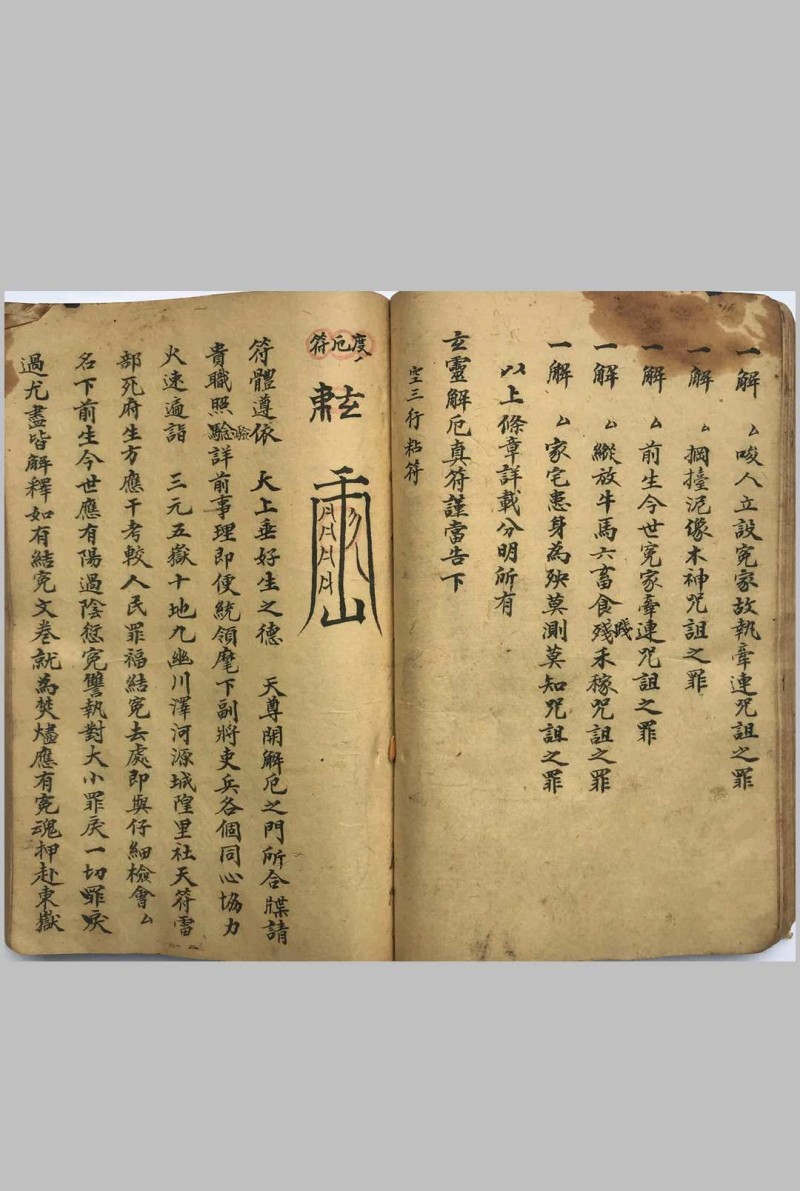 一解 厶唆人立設寃家故執牽連咒詛之罪
一解 厶掆擡泥像木神咒詛之罪
一解 厶前生今世寃家牽連咒詛之罪
一解 厶縱放牛馬六畜食殘踐禾稼咒詛之罪
一解 厶家宅患身為殃莫測莫知咒詛之罪
以上條章詳載分明所有
玄靈解厄真符謹當告下
空三行粘符
度厄符
符體遵依 大上垂好生之德 天尊開解厄之門所合牒請
貴職照驗驗詳前事理即便統領麾下副將吏兵各個同心恊力
火速遍詣 三元五嶽十地九幽川澤河源城隍里社天符雷
部死府生方應干考較人民罪福結寃去處即與仔細檢會厶
名下前生今世應有陽過陰愆寃讐執對大小罪戾一切罪戾
過尤盡皆解釋如有結寃文卷就為焚燼應有寃魂押赴東嶽